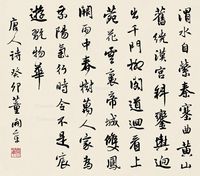 渭水自縈秦塞曲黃山
舊繞漢宮斜鑾輿迥
出千門柳閣道迴看上
苑花雲裏帝城雙鳳
闕雨中春樹萬人家為
乘陽氣行時令不是宸
遊翫物華
唐人詩 癸卯 董開章